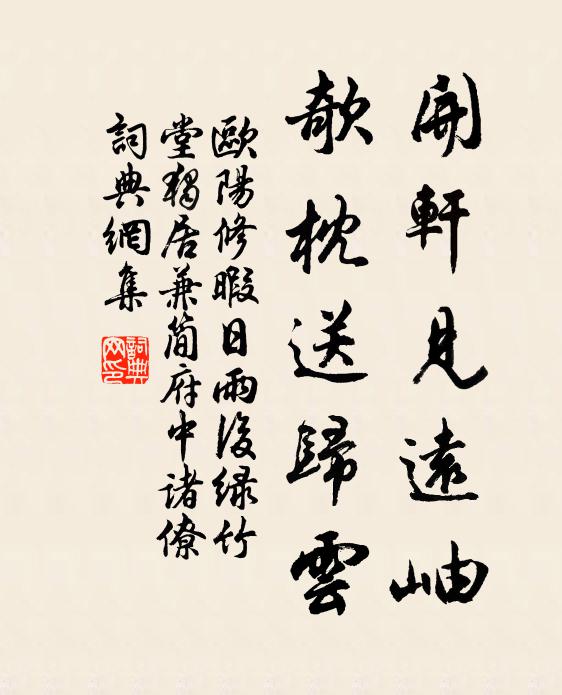 開軒見遠岫
欹枕送歸雲
歐陽修暇日雨後緑竹
堂獨居兼简府中诸僚
詞典網集
詞典
网印